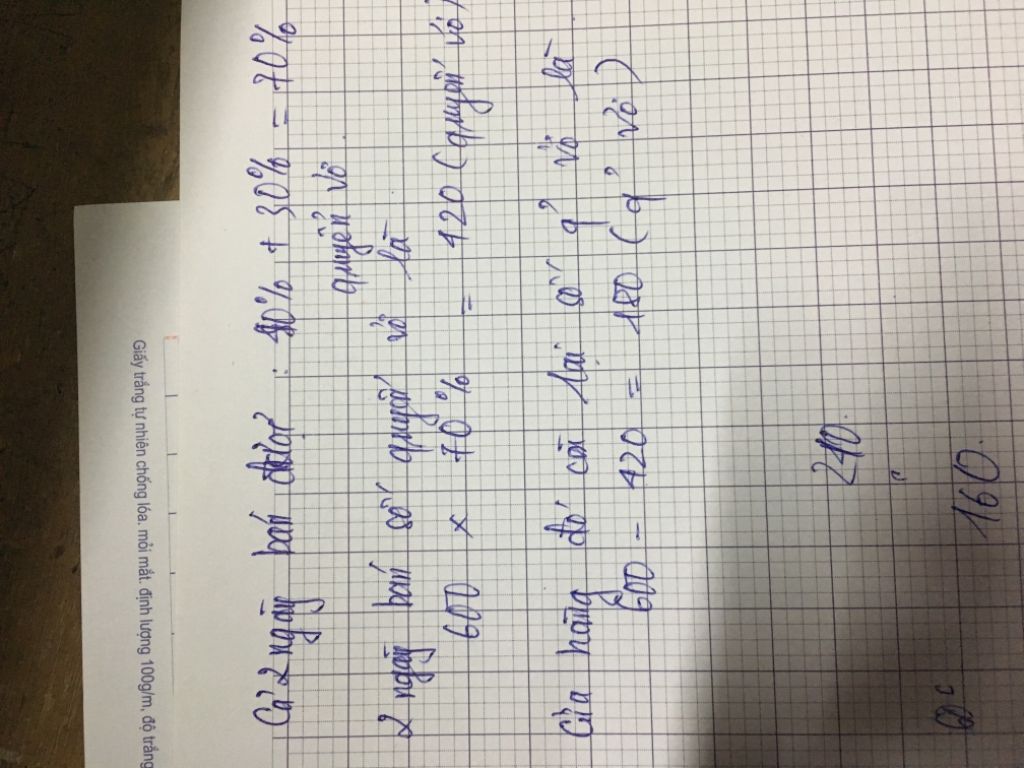 Cả 2 ngày bán được : 40% + 30% = 70%
quyển vở
2 ngày bán số quyển vở là
600 x 70% = 420 (quyển vở)
Cửa hàng đó còn lại số q' vở là
600 - 420 = 180 (q' vở)
210.
c
160.
Giấy trắng tự nhiên chống lóa. mỏi mắt. định lượng 100g/m. độ trắng